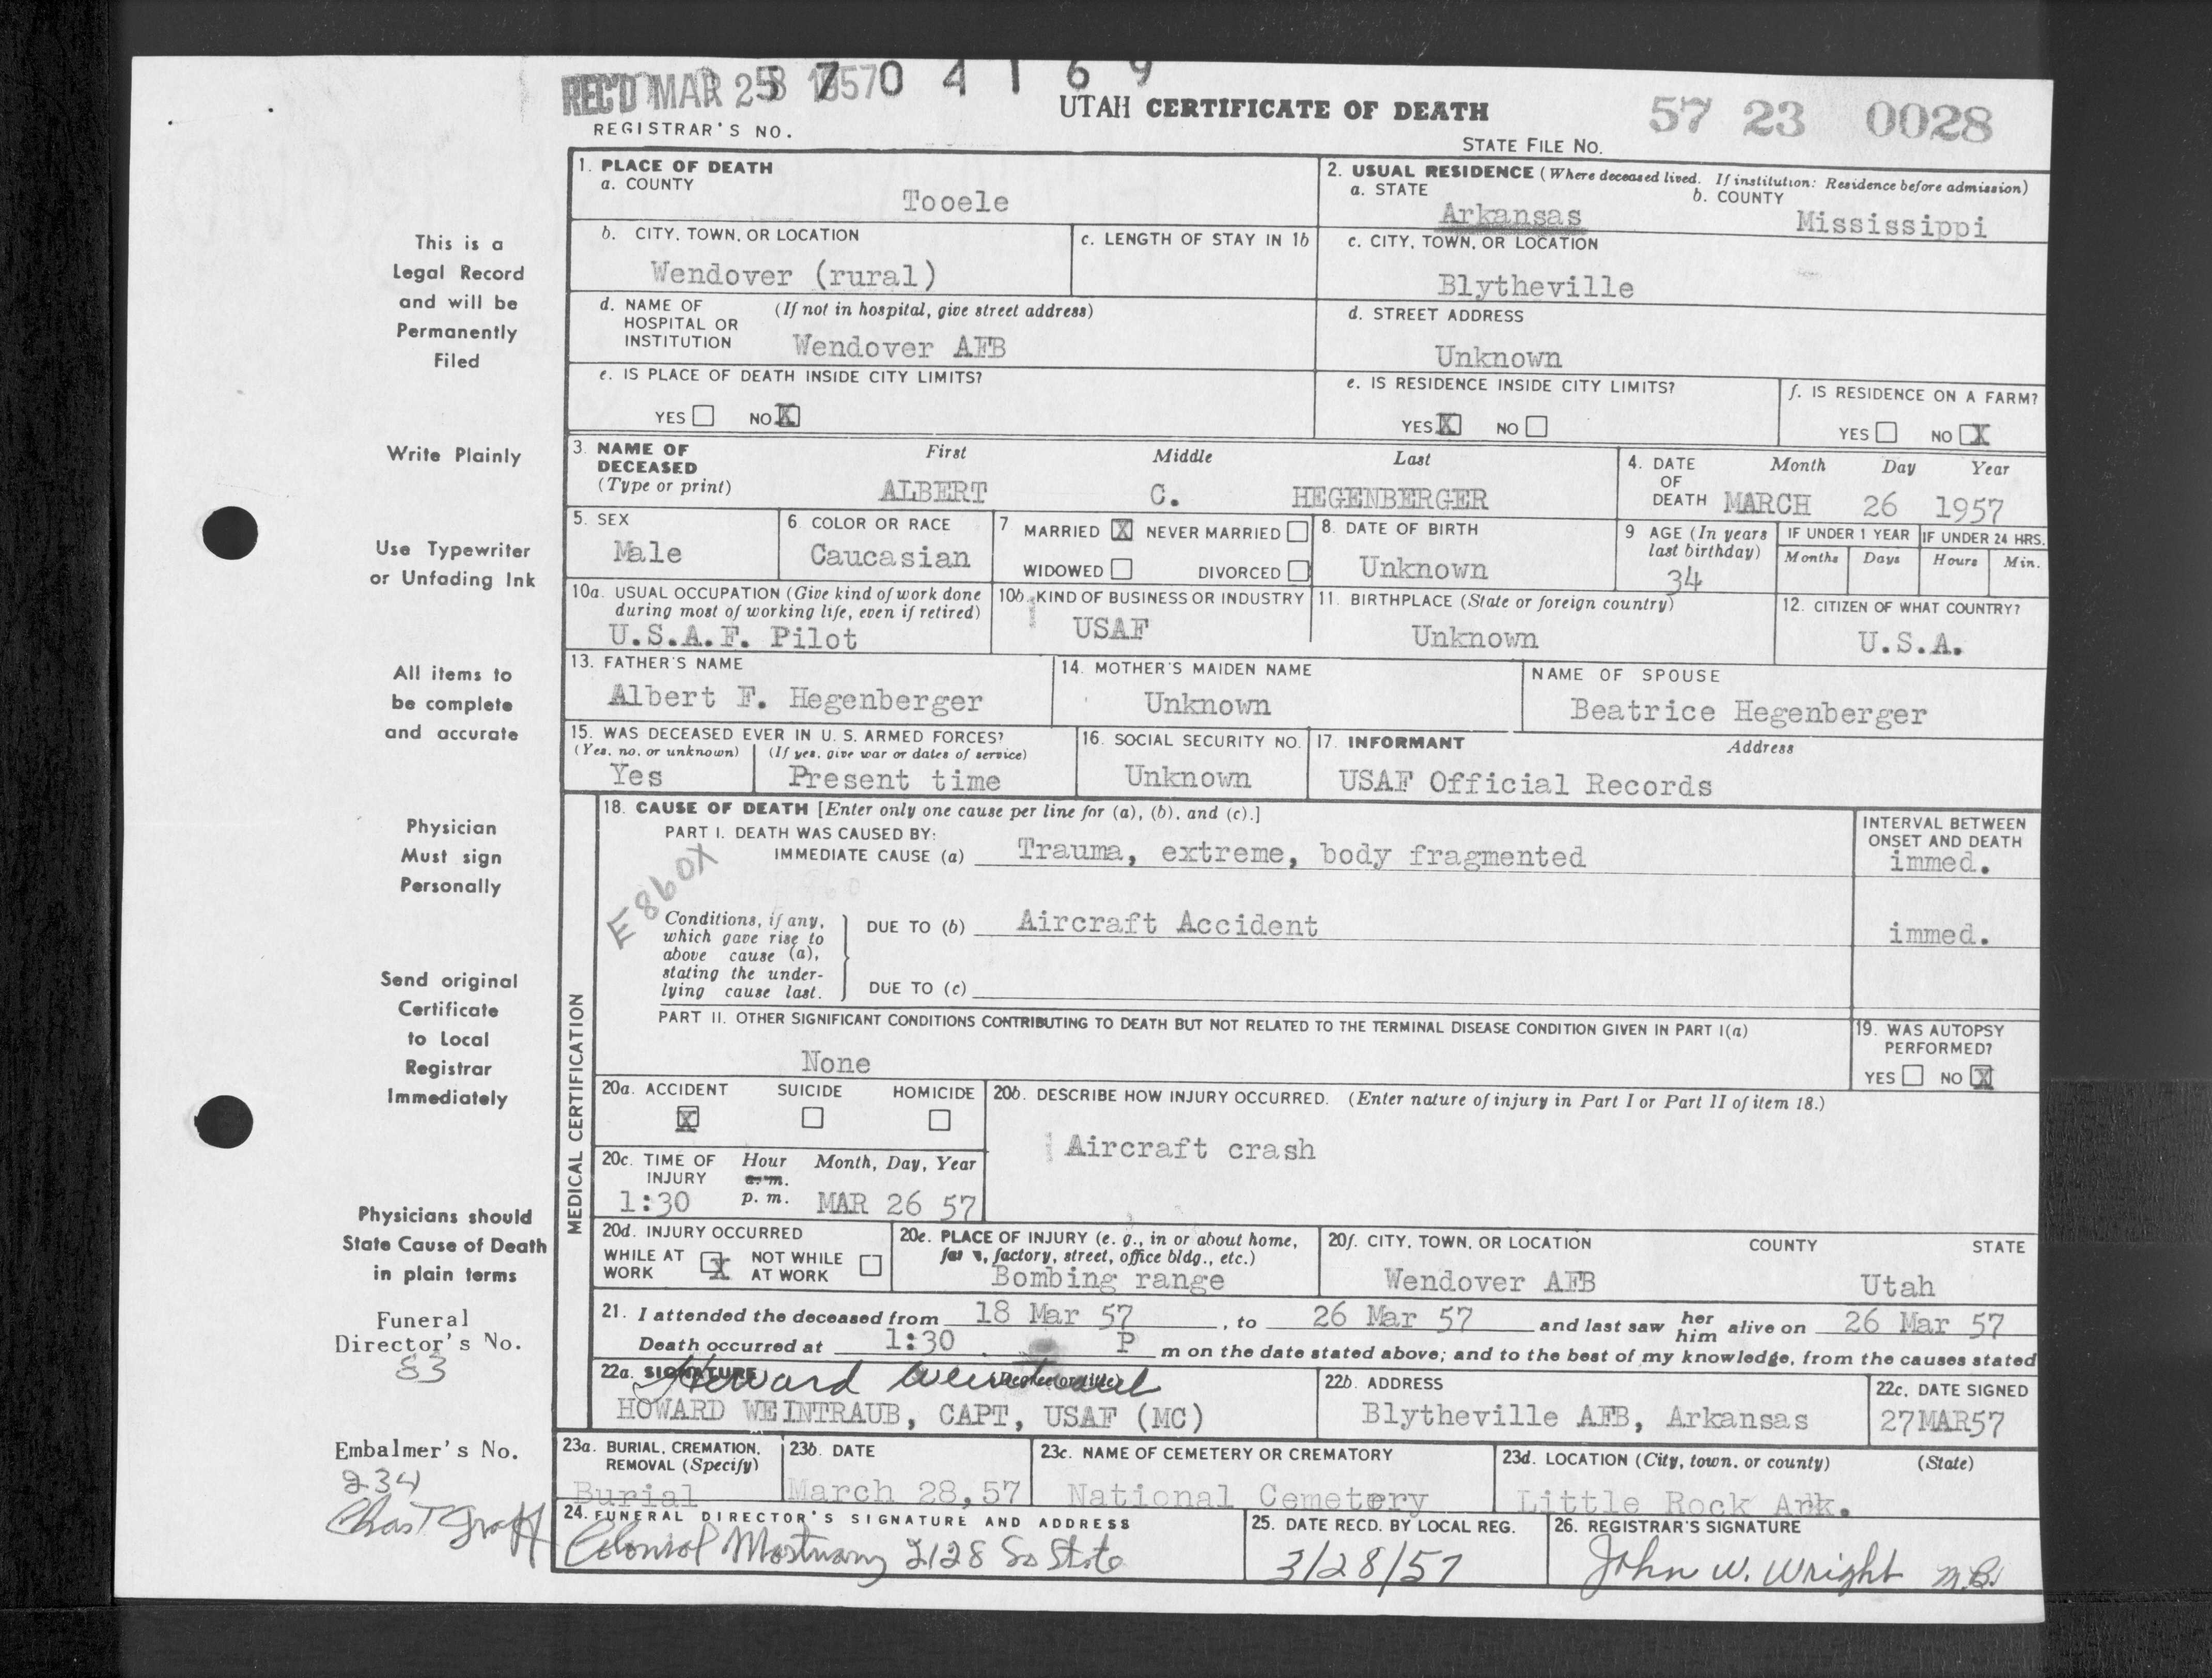 REC'D MAR 28 1957
5 7 0 4 1 6 9
REGISTRAR'S NO.
UTAH CERTIFICATE OF DEATH
57 23 0028
STATE FILE NO.
1. PLACE OF DEATH
a. COUNTY
Tooele
2. USUAL RESIDENCE (Where deceased lived. If institution: Residence before admission)
a. STATE
Arkansas
b. COUNTY
Mississippi
b. CITY, TOWN, OR LOCATION
Wendover (rural)
c. LENGTH OF STAY IN 1b
c. CITY, TOWN, OR LOCATION
Blytheville
d. NAME OF HOSPITAL OR INSTITUTION
(If not in hospital, give street address)
Wendover AFB
d. STREET ADDRESS
Unknown
e. IS PLACE OF DEATH INSIDE CITY LIMITS?
YES NO X
e. IS RESIDENCE INSIDE CITY LIMITS?
YES X NO
f. IS RESIDENCE ON A FARM?
YES NO X
3. NAME OF DECEASED
(Type or print)
First Middle Last
ALBERT C. HEGENBERGER
4. DATE OF DEATH
Month Day Year
MARCH 26 1957
5. SEX
Male
6. COLOR OR RACE
Caucasian
7 MARRIED X NEVER MARRIED
WIDOWED DIVORCED
8. DATE OF BIRTH
Unknown
9 AGE (In years last birthday)
34
IF UNDER 1 YEAR
Months Days
IF UNDER 24 HRS.
Hours Min.
10a. USUAL OCCUPATION (Give kind of work done during most of working life, even if retired)
U.S.A.F. Pilot
10b. KIND OF BUSINESS OR INDUSTRY
USAF
11. BIRTHPLACE (State or foreign country)
Unknown
12. CITIZEN OF WHAT COUNTRY?
U.S.A.
13. FATHER'S NAME
Albert F. Hegenberger
14. MOTHER'S MAIDEN NAME
Unknown
NAME OF SPOUSE
Beatrice Hegenberger
15. WAS DECEASED EVER IN U.S. ARMED FORCES?
(Yes, no, or unknown) (If yes, give war or dates of service)
Yes Present time
16. SOCIAL SECURITY NO.
Unknown
17. INFORMANT Address
USAF Official Records
MEDICAL CERTIFICATION
18. CAUSE OF DEATH [Enter only one cause per line for (a), (b), and (c).]
PART I. DEATH WAS CAUSED BY:
IMMEDIATE CAUSE (a) Trauma, extreme, body fragmented
INTERVAL BETWEEN ONSET AND DEATH
immed.
E860X
Conditions, if any, which gave rise to above cause (a), stating the underlying cause last.
DUE TO (b) Aircraft Accident
immed.
DUE TO (c)
PART II. OTHER SIGNIFICANT CONDITIONS CONTRIBUTING TO DEATH BUT NOT RELATED TO THE TERMINAL DISEASE CONDITION GIVEN IN PART I(a)
None
19. WAS AUTOPSY PERFORMED?
YES NO X
20a. ACCIDENT SUICIDE HOMICIDE
X
20b. DESCRIBE HOW INJURY OCCURRED. (Enter nature of injury in Part I or Part II of item 18.)
Aircraft crash
20c. TIME OF INJURY
Hour Month, Day, Year
a.m.
1:30 p.m. MAR 26 57
20d. INJURY OCCURRED
WHILE AT WORK X NOT WHILE AT WORK
20e. PLACE OF INJURY (e. g., in or about home, farm, factory, street, office bldg., etc.)
Bombing range
20f. CITY, TOWN, OR LOCATION COUNTY STATE
Wendover AFB Utah
21. I attended the deceased from 18 Mar 57, to 26 Mar 57 and last saw her him alive on 26 Mar 57
Death occurred at 1:30 P m on the date stated above; and to the best of my knowledge, from the causes stated
22a. SIGNATURE (Degree or title)
Howard Weintraub
HOWARD WEINTRAUB, CAPT, USAF (MC)
22b. ADDRESS
Blytheville AFB, Arkansas
22c. DATE SIGNED
27MAR57
23a. BURIAL, CREMATION, REMOVAL (Specify)
Burial
23b. DATE
March 28,57
23c. NAME OF CEMETERY OR CREMATORY
National Cemetery
23d. LOCATION (City, town, or county) (State)
Little Rock Ark.
24. FUNERAL DIRECTOR'S SIGNATURE AND ADDRESS
Colonial Mortuary 2128 So State
25. DATE RECD. BY LOCAL REG.
3/28/57
26. REGISTRAR'S SIGNATURE
John W. Wright M.D.
This is a
Legal Record
and will be
Permanently
Filed
Write Plainly
Use Typewriter
or Unfading Ink
All items to
be complete
and accurate
Physician
Must sign
Personally
Send original
Certificate
to Local
Registrar
Immediately
Physicians should
State Cause of Death
in plain terms
Funeral
Director's No.
83
Embalmer's No.
234
Chas T Graff